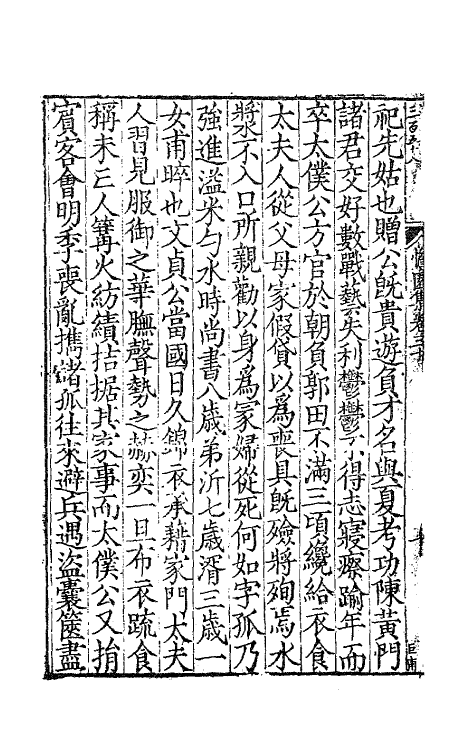 祀先姑也贈公旣貴遊負才名與夏考功陳黃門
諸君交好數戰藝失利鬱鬱不得志寢瘵踰年而
卒太僕公方官於朝負郭田不滿三頃纔給衣食
太夫人從父母家假貸以爲喪具旣殮將殉焉水
漿不入口所親勸以身爲冡婦從死何如字孤乃
強進溢米勺水時尚書八歲弟沂七歲湑三歲一
女甫晬也文貞公當國日久錦衣承藉家門太夫
人習見服御之華膴聲勢之赫奕一旦布衣疏食
稱未亡人篝火紡績拮据其家事而太僕公又捐
賓客會明季喪亂攜諸孤往來避兵遇盜囊篋盡